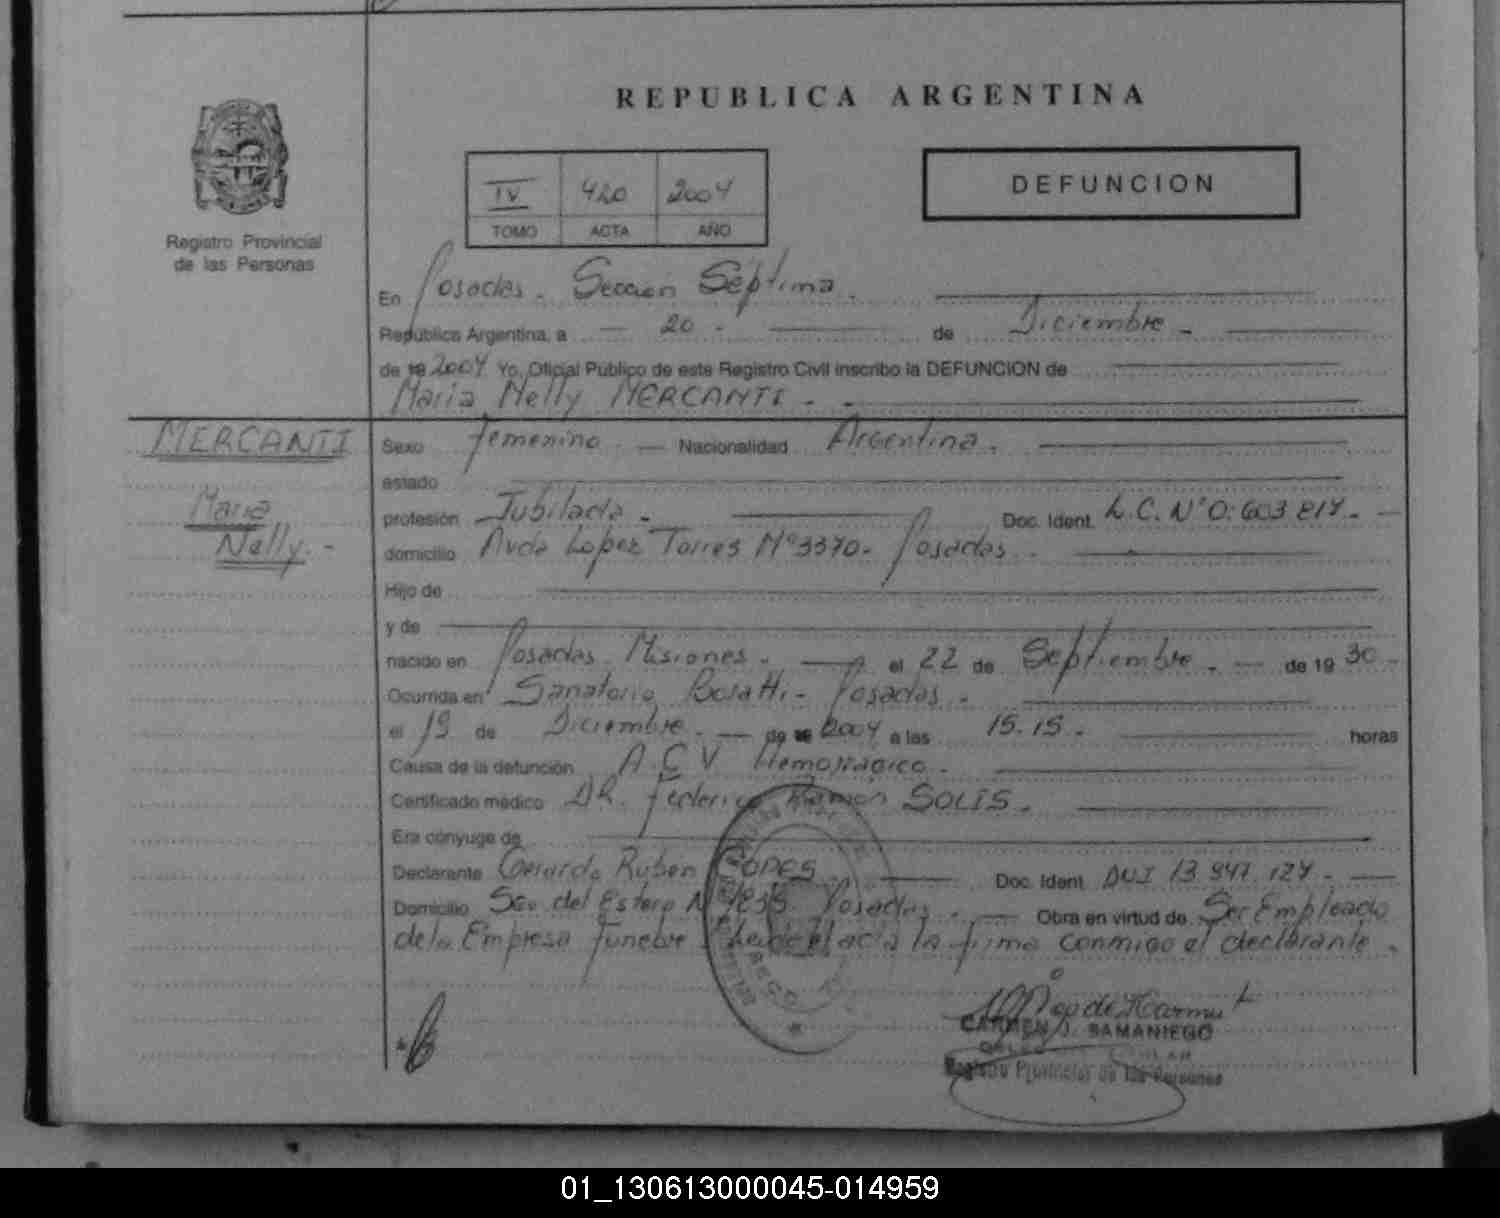 REPUBLICA ARGENTINA
IV 420 2004
TOMO ACTA AÑO
DEFUNCION
Registro Provincial
de las Personas
En Posadas. Sección Séptima.
República Argentina, a 20 - de Diciembre -
de 19 2004 Yo, Oficial Público de este Registro Civil inscribo la DEFUNCION de
María Nelly MERCANTI. -
MERCANTI
María
Nelly. -
Sexo femenino. - Nacionalidad Argentina.
estado
profesión Jubilada - Doc. Ident. L.C. Nº 0.603.817. -
domicilio Avda Lopez Torres Nº 3370. Posadas.
Hijo de
y de
nacido en Posadas. Misiones. - el 22 de Septiembre. - de 19 30 -
Ocurrida en Sanatorio Boratti - Posadas -
el 19 de Diciembre. - de 19 2004 a las 15.15. horas
Causa de la defunción A.C.V Hemorragico.
Certificado médico DR. Federico Ramón SOLIS.
Era cónyuge de
Declarante Gerardo Ruben LOPES Doc. Ident. DNI 13.847.127. -
Domicilio Sgo. del Estero Nº Posadas. - Obra en virtud de Ser Empleado
de la Empresa funebre Leida el acta la firma conmigo el declarante.
CARMEN J. SAMANIEGO
Registro Provincial de las Personas
01_130613000045-014959